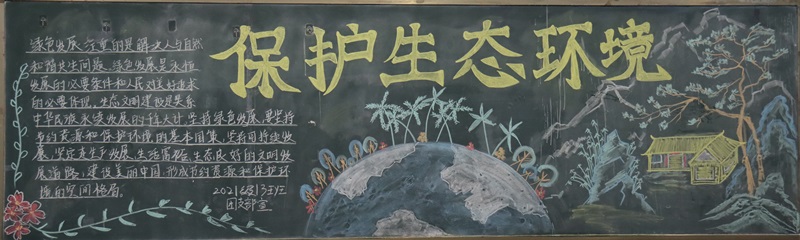 保护生态环境
绿色发展，注重的是解决人与自然
和谐共生问题。绿色发展是永续
发展的必要条件和人民对美好追求
的必要体现。生态文明建设是关系
中华民族永续发展的千秋大计，坚持绿色发展，要坚持
节约资源和保护环境的基本国策，坚持可持续发
展，坚定走生产发展、生活富裕、生态良好的文明发
展道路，建设美丽中国，形成节约资源和保护环
境的空间格局。
团支部宣